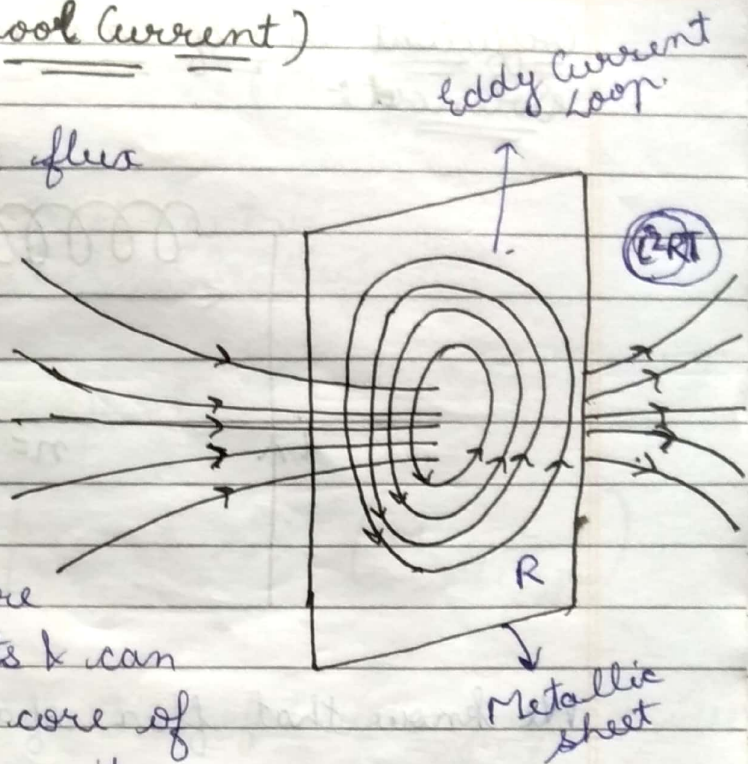 ool Current)
Eddy Current
Loop.
flux
i²RT
R
re
s & can
core of
Metallic
sheet